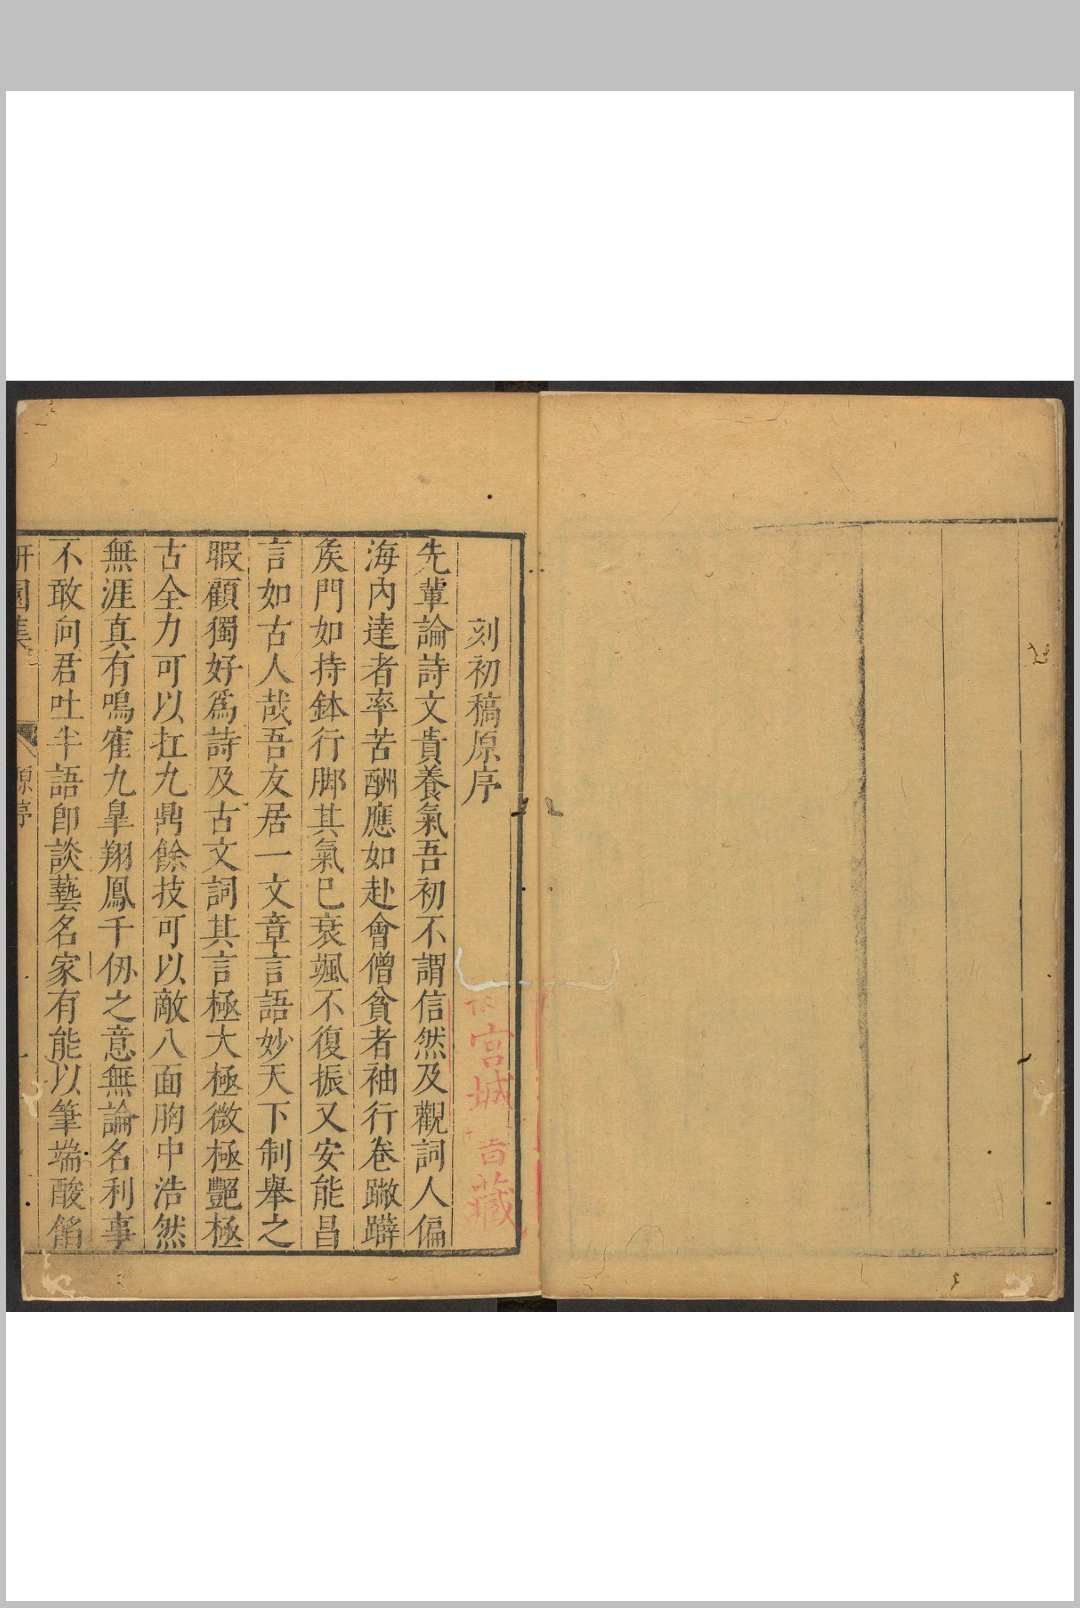 刻初稿原序
先輩論詩文貴養氣吾初不謂信然及觀詞人偏
海內達者率苦酬應如赴會僧貧者袖行卷蹩躄
矦門如持鉢行脚其氣已衰颯不復振又安能昌
言如古人哉吾友居一文章言語妙天下制舉之
暇顧獨好爲詩及古文詞其言極大極微極艷極
古全力可以扛九鼎餘技可以敵八面胸中浩然
無涯真有鳴寉九臯翔鳳千仭之意無論名利事
不敢向君吐半語卽談藝名家有能以筆端酸餡
園集
原序
宮城
藏